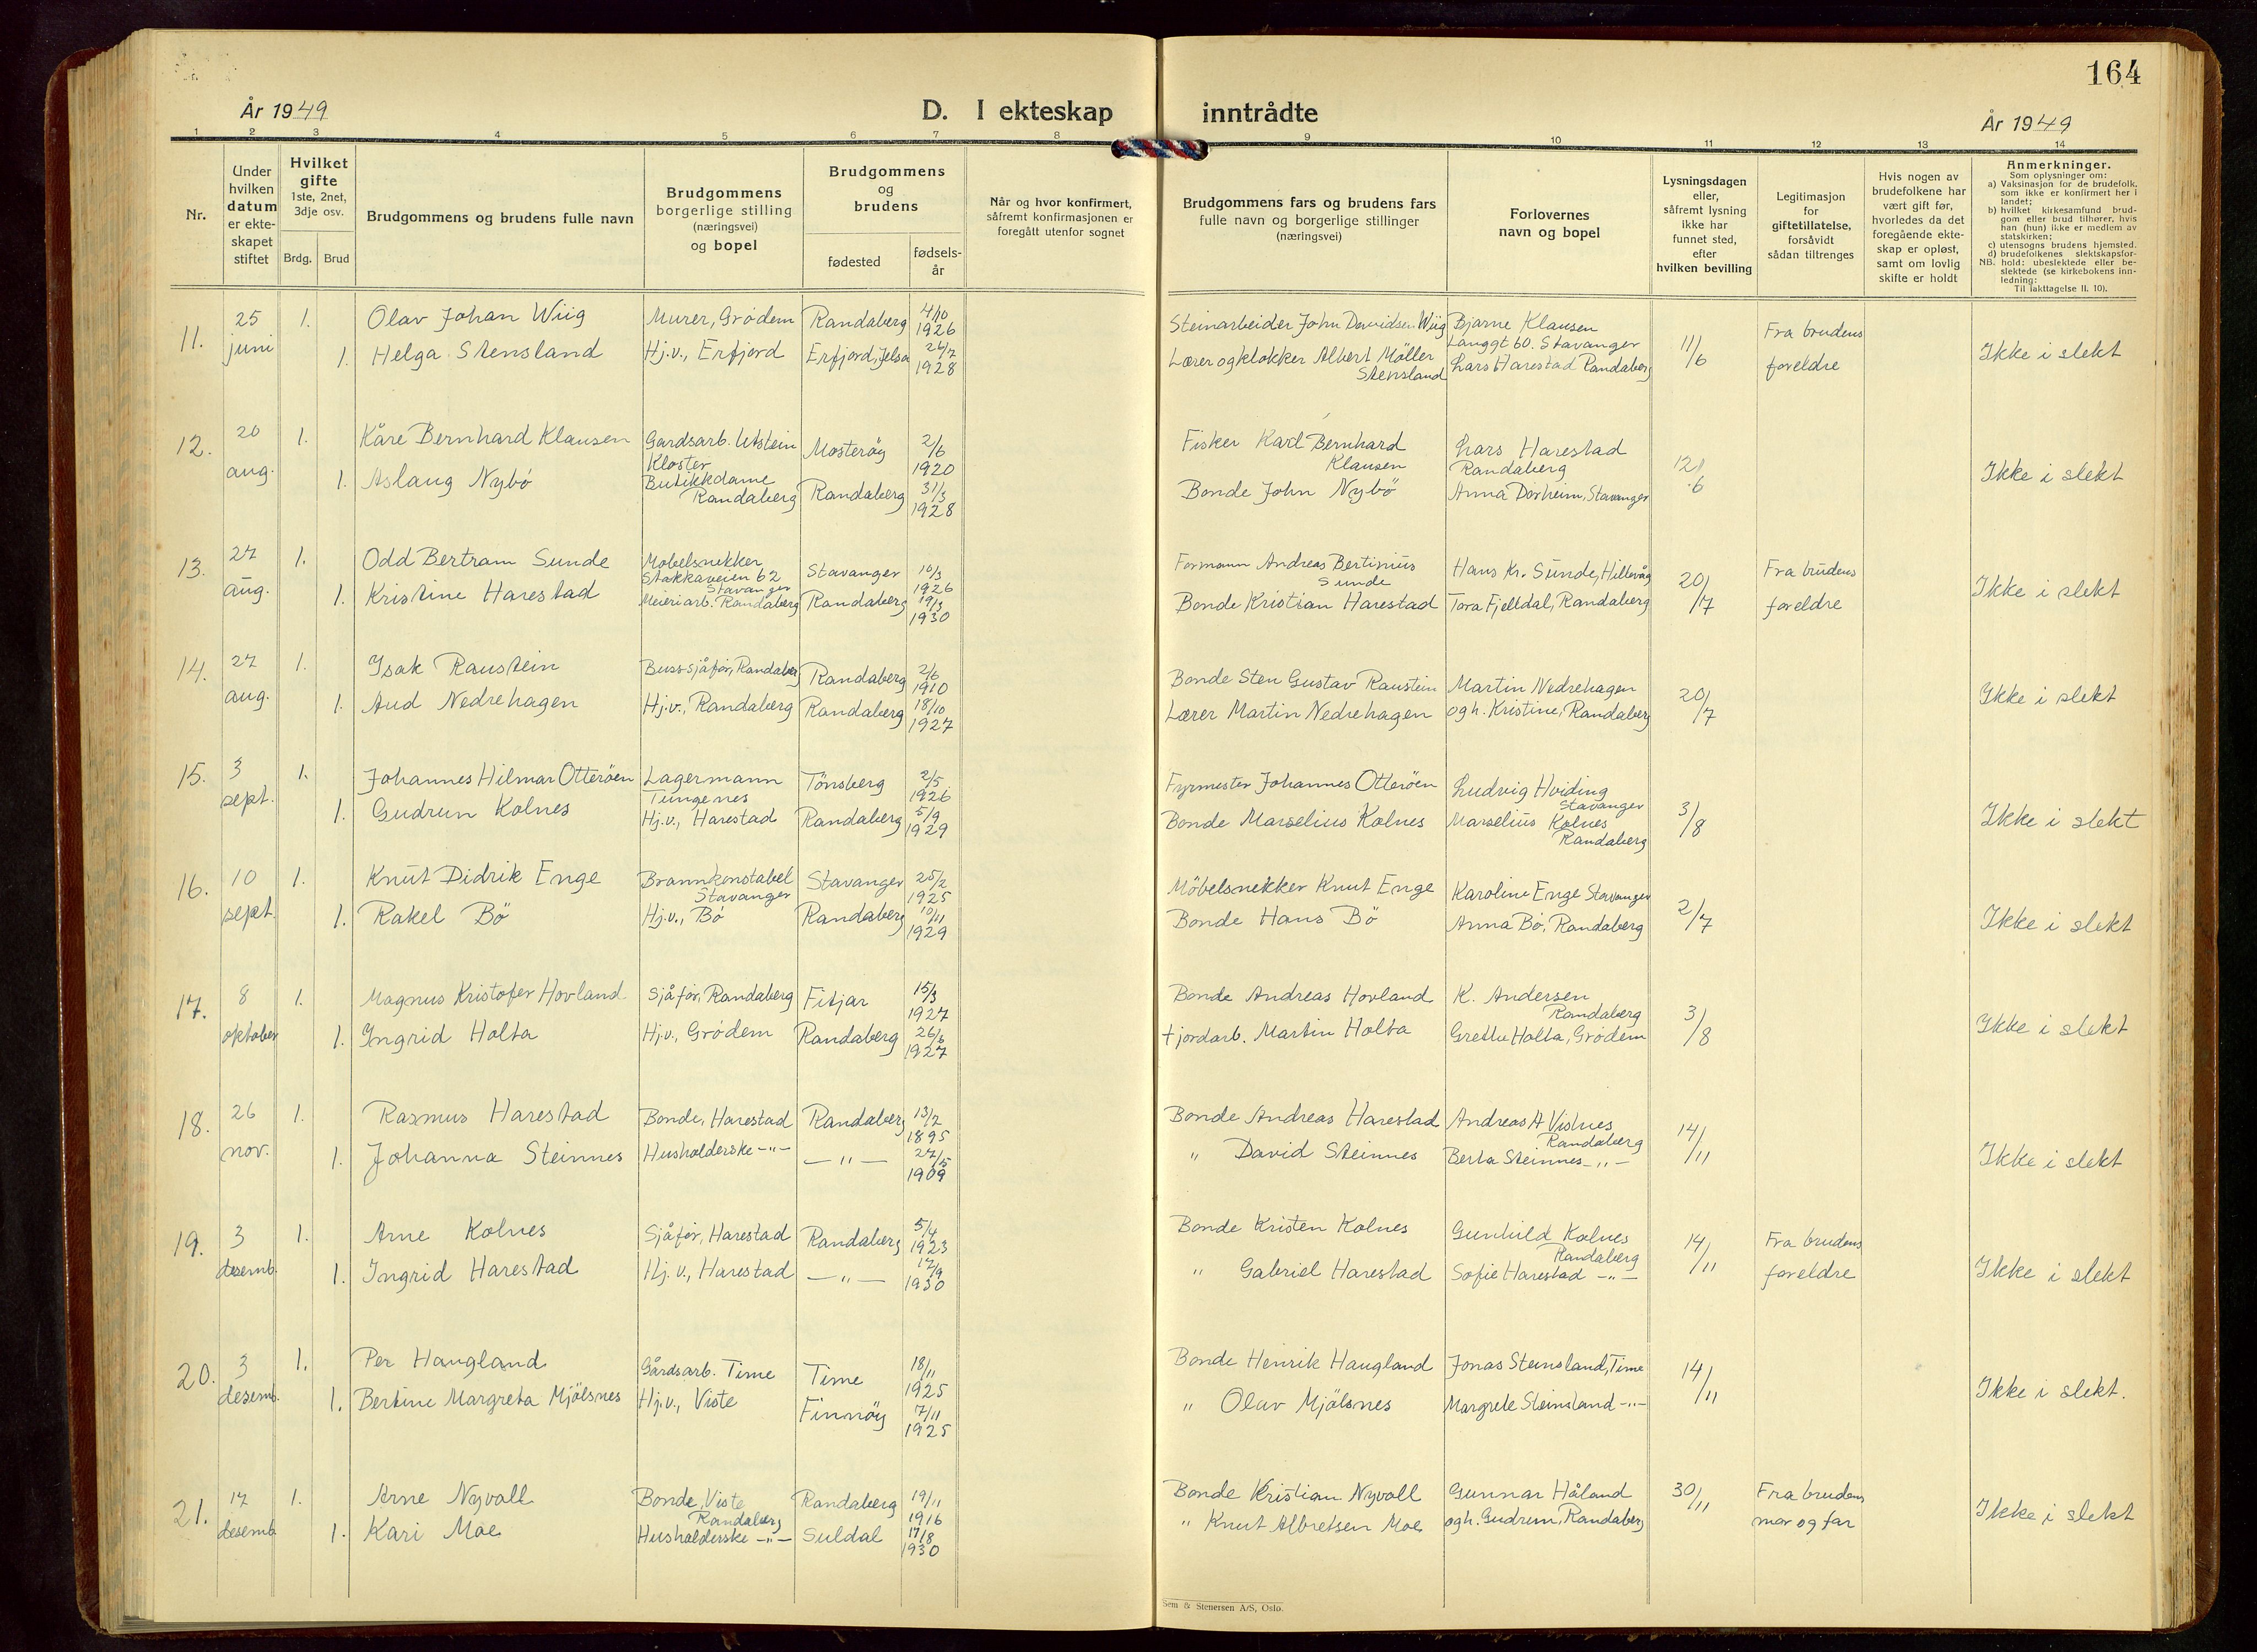 164
År 1949
D. I ekteskap inntrådte
År 1949
1 2 3 4 5 6 7 8 9 10 11 12 13 14
Nr.
Under hvilken datum er ekte-skapet stiftet
Hvilket gifte 1ste, 2net, 3dje osv.
Brdg. Brud
Brudgommens og brudens fulle navn
Brudgommens borgerlige stilling (næringsvei) og bopel
Brudgommens og brudens
fødested
fødsels-år
Når og hvor konfirmert, såfremt konfirmasjonen er foregått utenfor sognet
Brudgommens fars og brudens fars fulle navn og borgerlige stillinger (næringsvei)
Forlovernes navn og bopel
Lysningsdagen eller, såfremt lysning ikke har funnet sted, efter hvilken bevilling
Legitimasjon for giftetillatelse, forsåvidt sådan tiltrenges
Hvis nogen av brudefolkene har vært gift før, hvorledes da det foregående ekte-skap er opløst, samt om lovlig skifte er holdt
Anmerkninger.
Som oplysninger om:
a) Vaksinasjon for de brudefolk. som ikke er konfirmert her i landet;
b) hvilket kirkesamfund brud-gom eller brud tilhører, hvis han (hun) ikke er medlem av statskirken;
c) utensogns brudens hjemsted.
d) brudefolkenes slektskapsfor-hold: ubeslektede eller be-slektede (se kirkebokens inn-ledning:
NB.
Til iakttagelse II. 10).
11. 25 juni 1. Olav Johan Wiig Murer, Grödem Randaberg 4/10 1926 Steinarbeider John Davidsen Wiig Bjarne Klausen Langgt 60. Stavanger 11/6 Fra brudens foreldre Ikke i slekt
1. Helga Stensland Hj.v., Erfjord Erfjord, Jelsa 26/7 1928 Lærer og klokker Albert Möller Stensland Lars Harestad Randaberg
12. 20 aug. 1. Kåre Bernhard Klausen Gardsarb. Utstein Kloster Mosteröy 2/6 1920 Fisker Karl Bernhard Klausen Lars Harestad Randaberg 12/6 Ikke i slekt
1. Aslaug Nybö Butikkdame Randaberg Randaberg 31/3 1928 Bonde John Nybö Anna Dorheim, Stavanger
13. 27 aug. 1. Odd Bertram Sunde Møbelsnekker Stakkaveien 62 Stavanger Stavanger 10/3 1926 Formann Andreas Bertinius Sunde Hans Kr. Sunde, Hillevåg 20/7 Fra brudens foreldre Ikke i slekt
1. Kristine Harestad Meieriarb. Randaberg Randaberg 19/3 1930 Bonde Kristian Harestad Tora Fjelldal, Randaberg
14. 27 aug. 1. Isak Raustein Bussjåför, Randaberg Randaberg 2/6 1910 Bonde Sten Gustav Raustein Martin Nedrehagen 20/7 Ikke i slekt
1. Aud Nedrehagen Hj.v., Randaberg Randaberg 18/10 1927 Lærer Martin Nedrehagen og h. Kristine, Randaberg
15. 3 sept. 1. Johannes Hilmar Otteröen Lagermann Tungenes Tönsberg 2/5 1926 Fyrmester Johannes Otteröen Ludvig Hviding Stavanger 3/8 Ikke i slekt
1. Gudrun Kolnes Hj.v., Harestad Randaberg 5/9 1929 Bonde Marselius Kolnes Marselius Kolnes Randaberg
16. 10 sept. 1. Knut Didrik Enge Brannkonstabel Stavanger Stavanger 25/2 1925 Möbelsnekker Knut Enge Karoline Enge Stavanger 2/7 Ikke i slekt
1. Rakel Bö Hj.v., Bö Randaberg 10/11 1929 Bonde Hans Bö Anna Bö, Randaberg
17. 8 oktober 1. Magnus Kristofer Hovland Sjåför, Randaberg Fitjar 15/3 1927 Bonde Andreas Hovland K. Andersen Randaberg 3/8 Ikke i slekt
1. Ingrid Holta Hj.v., Grödem Randaberg 26/6 1927 † jordarb. Martin Holta Grethe Holta, Grödem
18. 26 nov. 1. Rasmus Harestad Bonde, Harestad Randaberg 13/2 1895 Bonde Andreas Harestad Andreas A Vistnes Randaberg 14/11 Ikke i slekt
1. Johanna Steinnes Husholderske -"- -"- 27/5 1909 " David Steinnes Berta Steinnes -"-
19. 3 desemb. 1. Arne Kolnes Sjåför, Harestad Randaberg 5/4 1923 Bonde Kristen Kolnes Gunhild Kolnes Randaberg 14/11 Fra brudens foreldre Ikke i slekt
1. Ingrid Harestad Hj.v., Harestad -"- 17/9 1930 " Gabriel Harestad Sofie Harestad -"-
20. 3 desemb. 1. Per Haugland Gårdsarb. Time Time 18/11 1925 Bonde Henrik Haugland Jonas Steinsland, Time 14/11 Ikke i slekt.
1. Bertine Margreta Mjölsnes Hj.v., Viste Finnöy 17/11 1925 " Olav Mjölsnes Margrete Steinsland -"-
21. 17 desemb. 1. Arne Nyvoll Bonde, Viste Randaberg Randaberg 19/11 1916 Bonde Kristian Nyvoll Gunnar Håland 30/11 Fra brudens mor og far Ikke i slekt
1. Kari Moe Husholderske -"- Suldal 17/8 1930 " Knut Albretsen Moe og h. Gudrun, Randaberg
Sem & Stenersen A/S, Oslo.